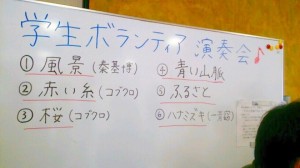 学生ボランティア 演奏会♪
①風景 (秦基博)
②赤い糸 (コブクロ)
③桜 (コブクロ)
④青い山脈
⑤ふるさと
⑥ハナミズキ (一青窈)